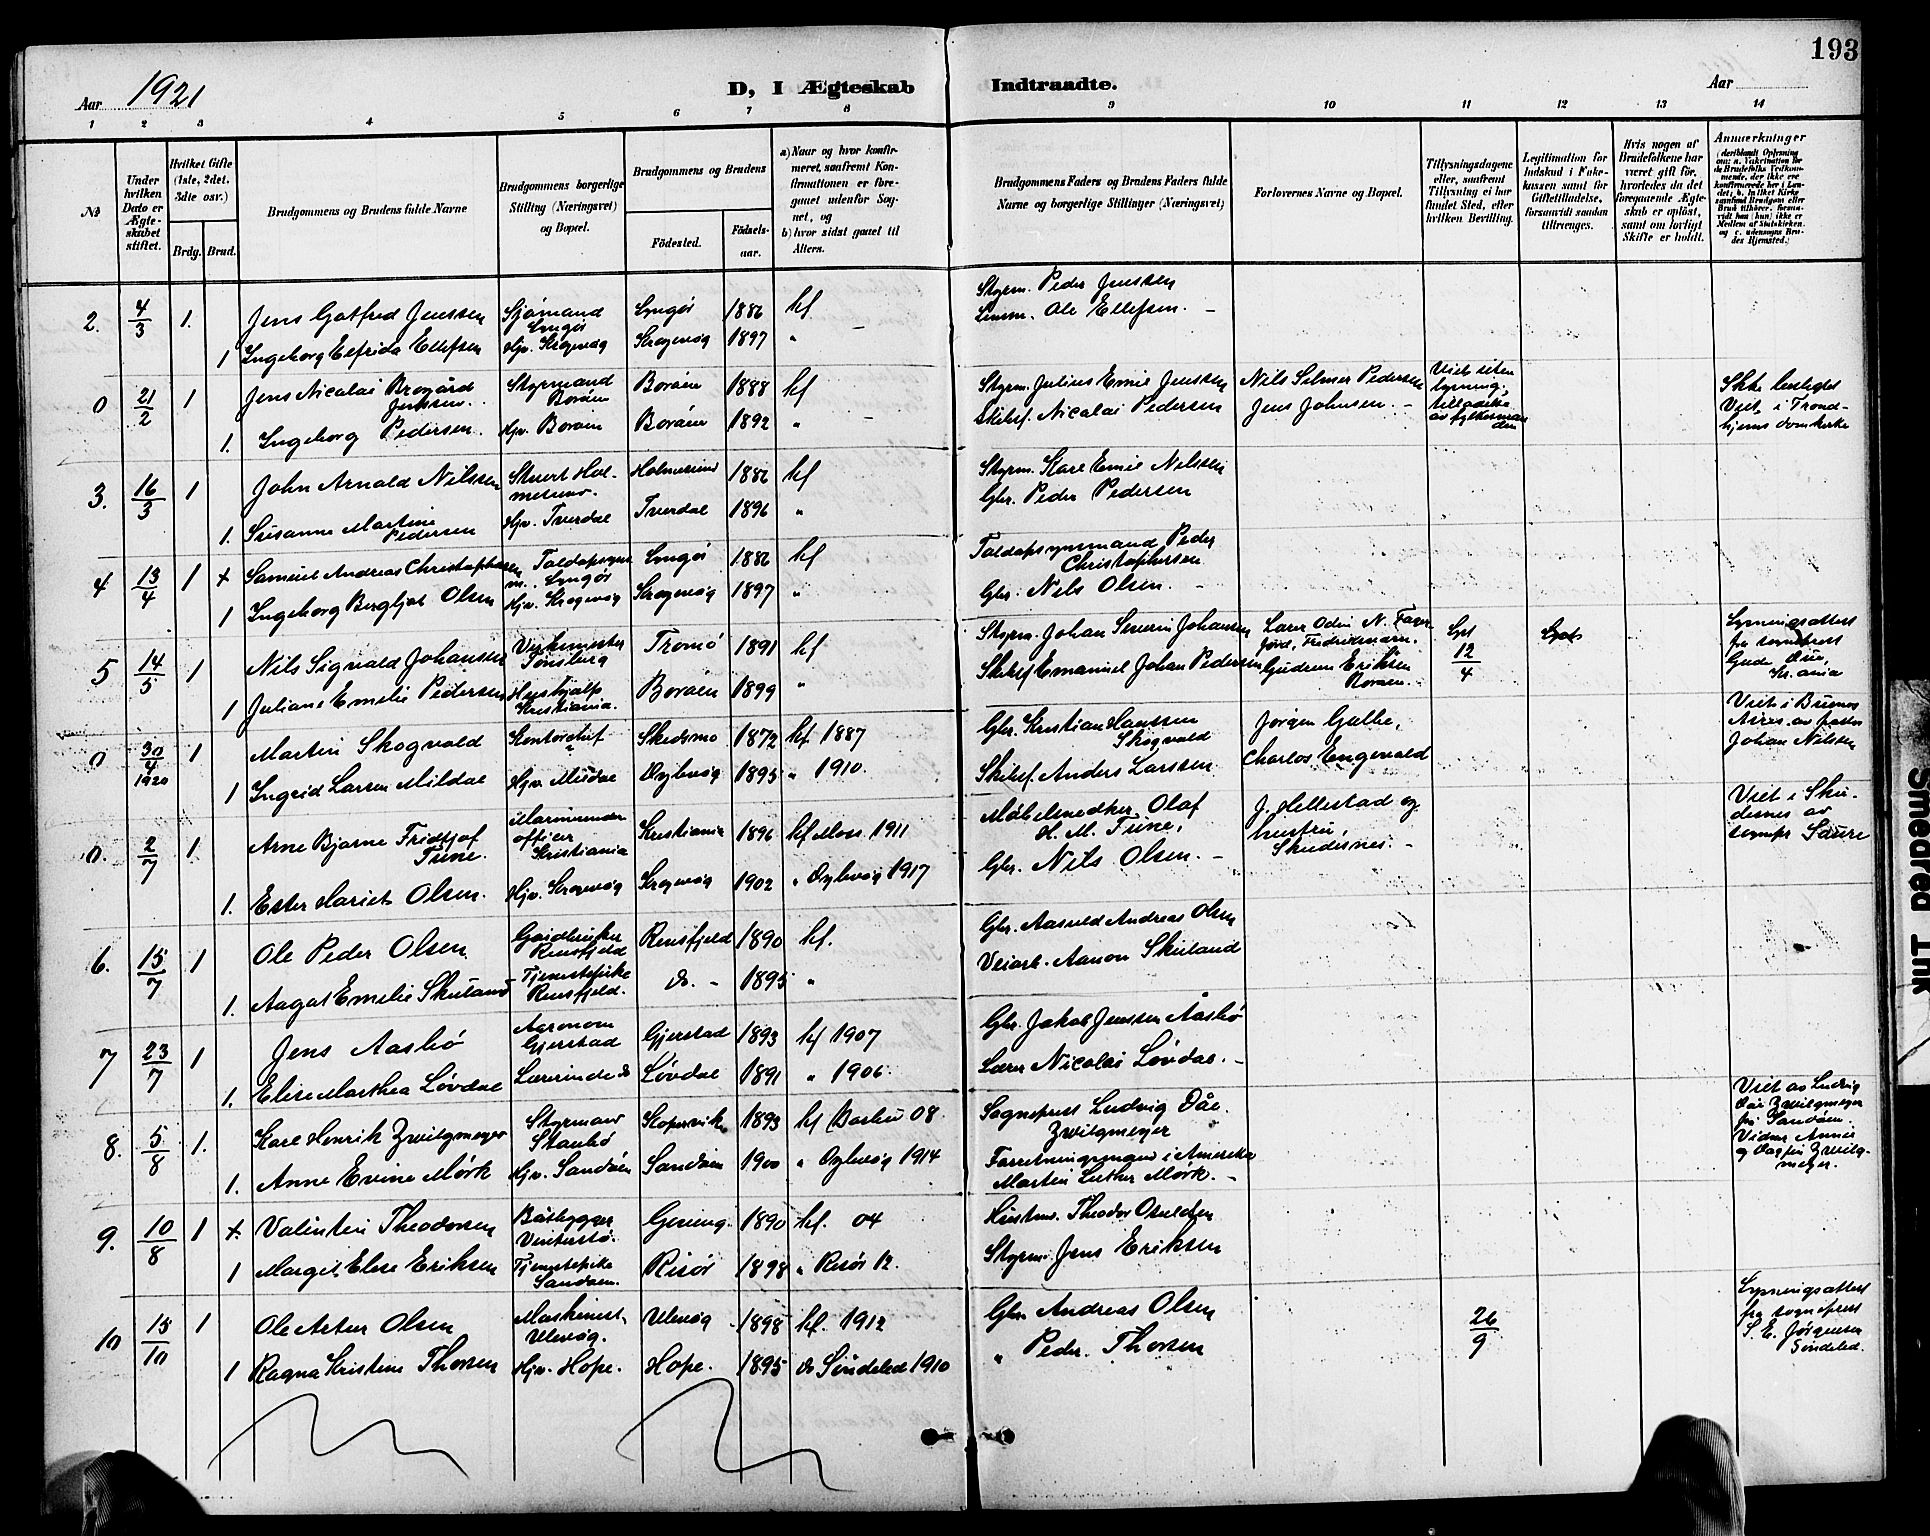 193
Aar 1921
D, I Ægteskab Indtraadte.
Aar
1 2 3 4 5 6 7 8 9 10 11 12 13 14
№
Under hvilken Dato er Ægteskabet stiftet.
Hvilket Gifte (1ste, 2det, 3die osv.)
Brdg. Brud.
Brudgommens og Brudens fulde Navne
Brudgommens borgerlige Stilling (Næringsvei) og Bopæl.
Brudgommens og Brudens
Fødested.
Fødselsaar.
a) Naar og hvor konfirmeret, saafremt Konfirmationen er foregaaet udenfor Sognet, og
b) hvor sidst gaaet til Alters.
Brudgommens Faders og Brudens Faders fulde Navne og borgerlige Stillinger (Næringsvei)
Forlovernes Navne og Bopæl.
Tillysningsdagene eller, saafremt Tillysning ei har fundet Sted, efter hvilken Bevilling.
Legitimation for Indskud i Enkekassen samt for Giftetilladelse, forsaavidt saadan tiltrænges.
Hvis nogen af Brudefolkene har været gift før, hvorledes da det foregaaende Ægteskab er opløst, samt om lovligt Skifte er holdt.
Anmerkninger
2. 4/3 1. Jens Gotfred Jenssen Sjømand Lyngør Lyngør 1886 kf Styrm. Peder Jenssen
1 Ingeborg Elfrida Ellefsen Hjv. Krogevåg Krogevåg 1897 " Ole Ellefsen. -
0 21/2 1 Jens Nicolai Brogård Jenssen. Styrmand Borøen Borøen 1888 kf Styrm. Julius Emil Jenssen Nils Selmer Pedersen Viet uten lysning, tilladelse av fylkesmanden Ikke lenliget Viet i Trondhjems domkirke
1. Ingeborg Pedersen. Hjv. Borøen Borøen 1892 " Skibsf. Nicolai Pedersen Jens Johnsen. -
3. 16/3 1 John Arnold Nilssen Stuert Holmesund. Holmesund 1886 kf Styrm. Karl Emil Nilssen
1. Susanne Martine Pedersen Hjv. Tverdal Tverdal 1896 " Gbr. Peder Pedersen
4 13/4 1 + Samuel Andreas Christophersen Toldopsynsm. Lyngør Lyngør 1886 kf Toldopsynsmand Peder Christophersen
1 Ingeborg Bergljot Olsen Hjv. Krogevåg Krogevåg 1897 " Gbr. Nils Olsen. -
5 14/5 1 Nils Sigvald Johansen Verksmester Tønsberg Tromø 1891 kf Styrm. Johan Severin Johansen Lyst 12/4 Lysningsattest fra sogneprest Gude Kr.ania
1 Juliane Emilie Pedersen Hushjælp Kristiania. Borøen 1899 " Skibsf Emanuel Johan Pedersen Gudrun Eriksen Borøen.
0 30/4 1920 1 Martin Skogvold Kontorchef Skedsmo 1872 kf 1887 Gbr. Kristian Hanssen Skogvold Jørgen Galbe, Viet i Buenos Aires av pastor Johan Nilssen
1 Ingrid Larsen Mildal Hjv. Misdal Dybvåg 1895 " 1910. Skibsf. Anders Larssen Charles Engevald
0. 2/7 1. Arne Bjarne Fridtjof Tune. Marineunderofficer Kristiania Kristiania 1896 kf Moss 1911 Møbelsnedker Olaf H. M. Tune, J. Hellestad og hustru, Skudesnes. - Viet i Skudesnes av sognepr Saure
1. Ester Hariet Olsen. Hjv. Krogevåg Krogevåg 1902 " Dybvåg 1917 Gbr. Nils Olsen. -
6. 15/7 1 Ole Peder Olsen Gardbruker Rensfjeld Rensfjeld 1890 kf. Gbr. Aasuld Andreas Olsen
1. Aagot Emilie Skuland Tjenestepike Rensfjeld. do. - 1895 " Veiarb. Aanon Skuland
7 23/7 1 Jens Aasbø Agronom Gjerstad Gjerstad 1893 kf 1907 Gbr. Jakob Jenssen Åasbø
1. Elise Marthea Løvdal Lærerinde do Løvdal 1891 " 1906. Lærer Nicolai Løvdal. -
8. 5/8 1. Karl Henrik Zwilgmeyer Styrmann Staubø Kopervik 1893 kf Barbu 08. Sogneprest Ludvig Dåe Zwilgmeyer Viet av Ludvig Dåe Zwilgmeyer på Sandøen. Vidner Annie og Dagfin Zwilgmeyer.
1. Anne Evine Mørk Hjv. Sandøen Sandøen 1900 " Dybvåg 1914 Forretningsmann i Amerika Martin Luther Mørk. -
9. 10/8 1 + Valentin Theodorsen Båtbygger Vinterstø. Gjeving. 1890 kf. 04 Theodor Osuldsen
1 Margit Elise Eriksen Tjenestepike Sandøen. Risør 1898 " Risør 12. Styrm. Jens Eriksen
10 15/10 1 Ole Artur Olsen Maskinist Ulevåg. Ulevåg 1898 kf. 1912 Gbr. Andreas Olsen 26/9 Lysningsattest fra sogneprest S. E. Jørgensen Søndeled.
1 Ragna Kristine Thorsen Hjv. Hope. Hope. 1895 do Søndeled 1910 " Peder Thorsen
Smedred Ink